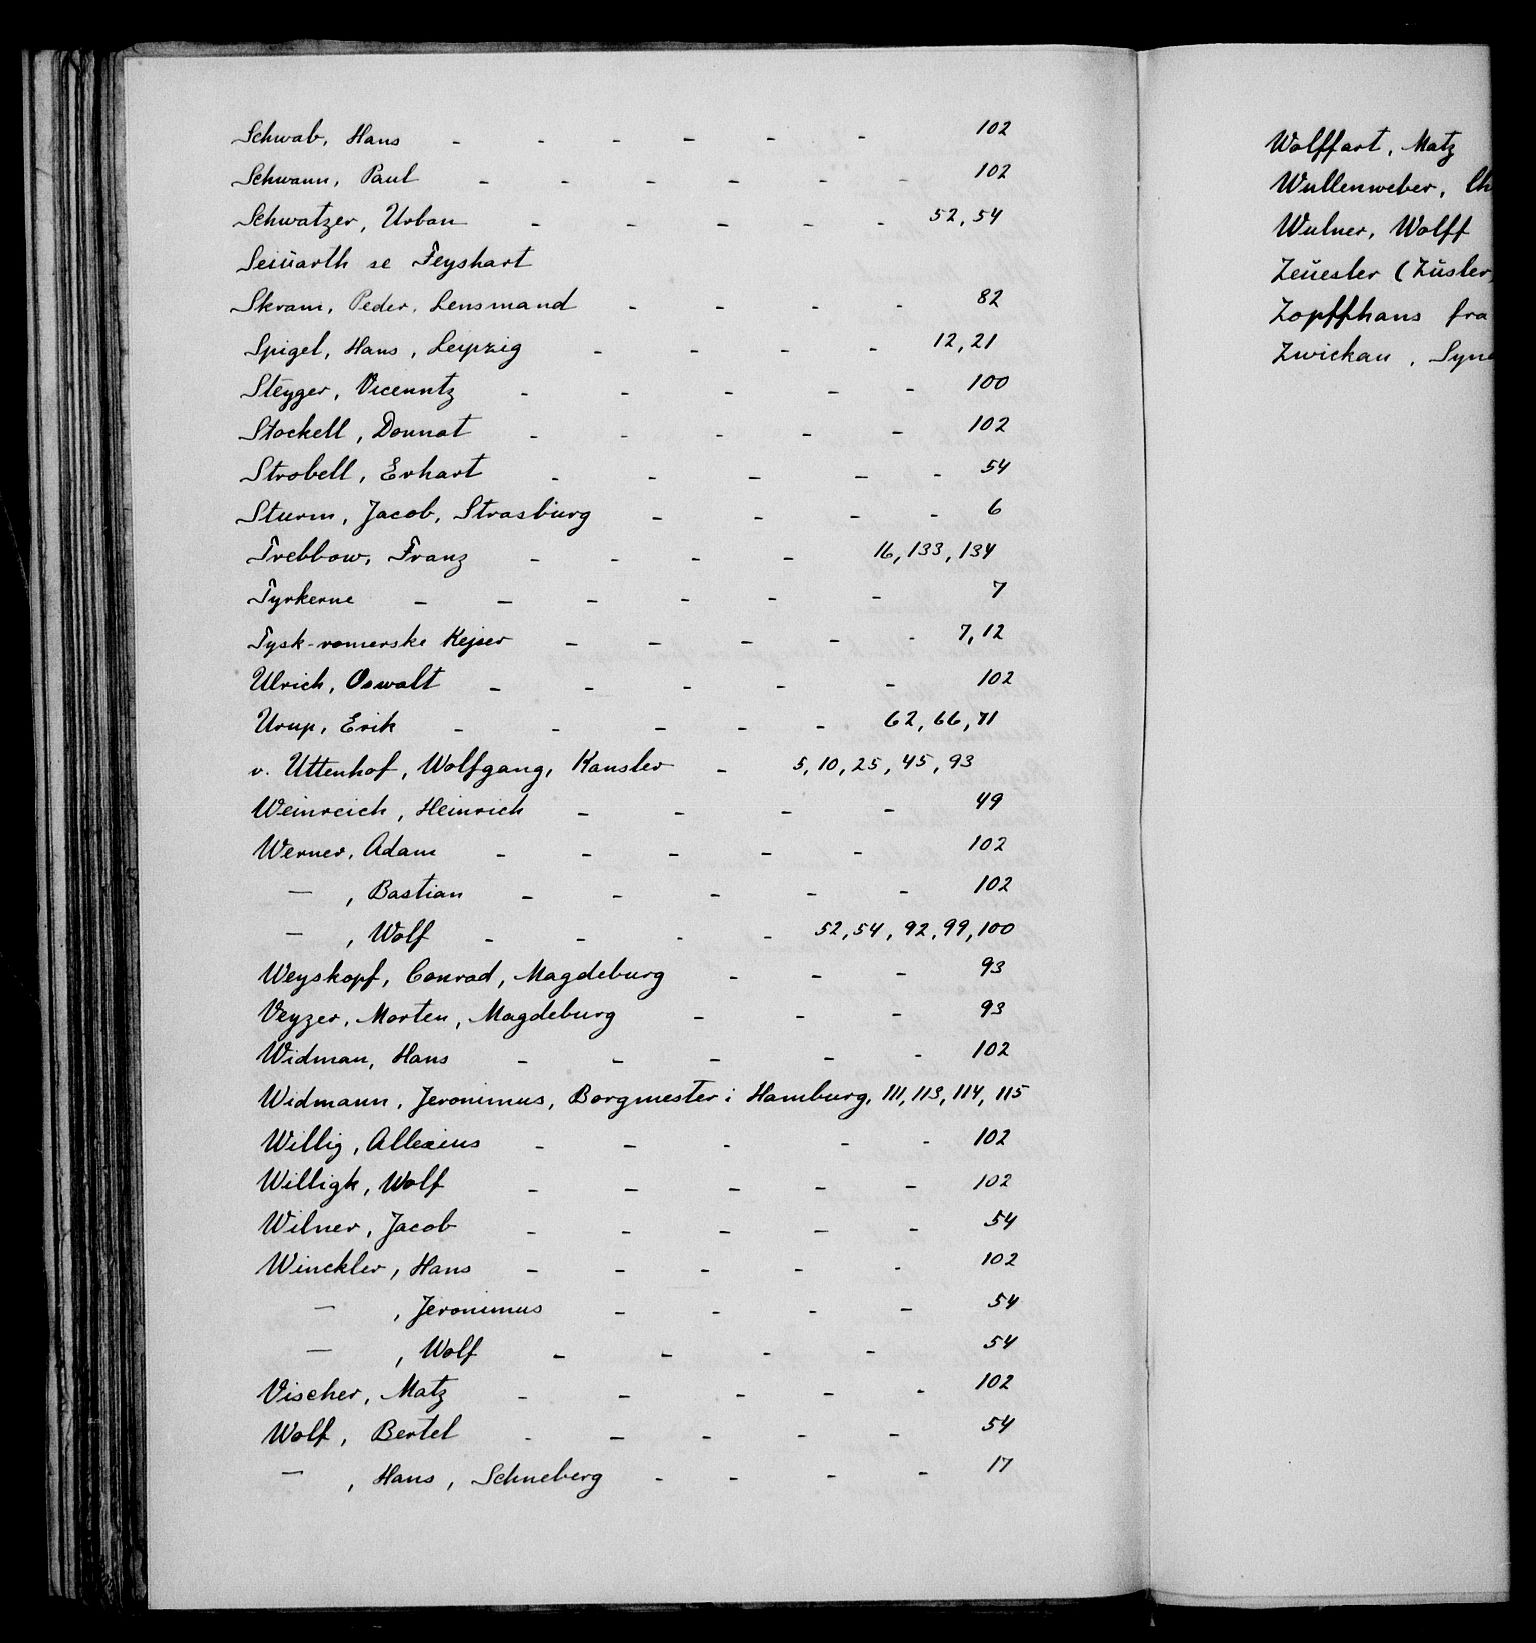 Schwab, Hans - - - - - - 102
Schwann, Paul - - - - - - 102
Schwatzer, Urban - - - - - 52, 54
Seiŭarth se Feyshart
Skram, Peder, Lensmand - - - - 82
Spigel, Hans, Leipzig - - - - 12, 21
Steyger, Vicenntz - - - - - 100
Stockell, Donnat - - - - - 102
Strobell, Erhart - - - - - 54
Sturm, Jacob, Strasbŭrg - - - - 6
Trebbow, Franz - - - - 16, 133, 134
Tyrkerne - - - - - - 7
Tysk-romerske Kejser - - - - - 7, 12
Ulrich, Oswalt - - - - - 102
Urup, Erik - - - - - 62, 66, 71
v. Uttenhof, Wolfgang, Kansler - 5, 10, 25, 45, 93
Weinreich, Heinrich - - - - 49
Werner, Adam - - - - - 102
— , Bastian - - - - - 102
— , Wolf - - - - 52, 54, 92, 99, 100
Weyskopf, Conrad, Magdeburg - - - 93
Veyzer, Morten, Magdeburg - - - 93
Widman, Hans - - - - - 102
Widmann, Jeronimus, Borgmester i Hamburg, 111, 113, 114, 115
Willig, Allexius - - - - - 102
Willigk, Wolf - - - - - 102
Wilner, Jacob - - - - - 54
Winckler, Hans - - - - - 102
— , Jeronimus - - - - 54
— , Wolf - - - - 54
Vischer, Matz - - - - - 102
Wolf, Bertel - - - - - 54
— , Hans, Schneberg - - - - 17
Wolffart, Matz
Wullenweber, Ch
Wulner, Wolff
Zeŭesler (Zŭsler,
Zopffhans fra
Zwickau, Syn